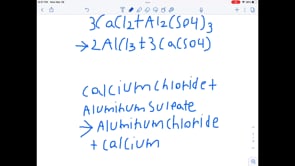 3CaCl2+Al2(SO4)3
→2AlCl3+3CaSO4)
calciumchloride+
Aluminum Sulfate
→Aluminumchloride
+calcium